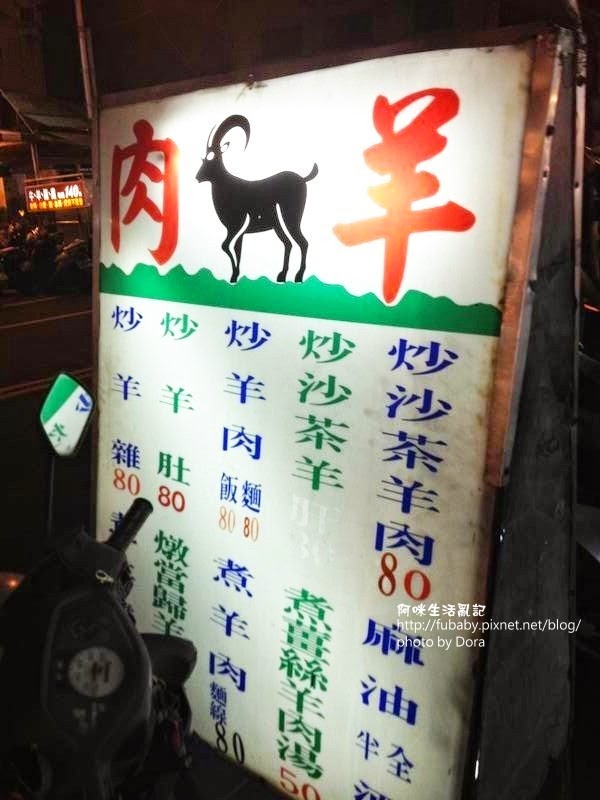 羊肉
炒沙茶羊肉
80
麻油
半 全
酒
炒沙茶羊肝
80
煮薑絲羊肉湯
50
炒羊肉
麵 飯
80 80
煮羊肉
麵線
80
炒羊肚
80
燉當歸羊
炒羊雜
80
140
阿咪生活亂記
http://fubaby.pixnet.net/blog/
photo by Dora